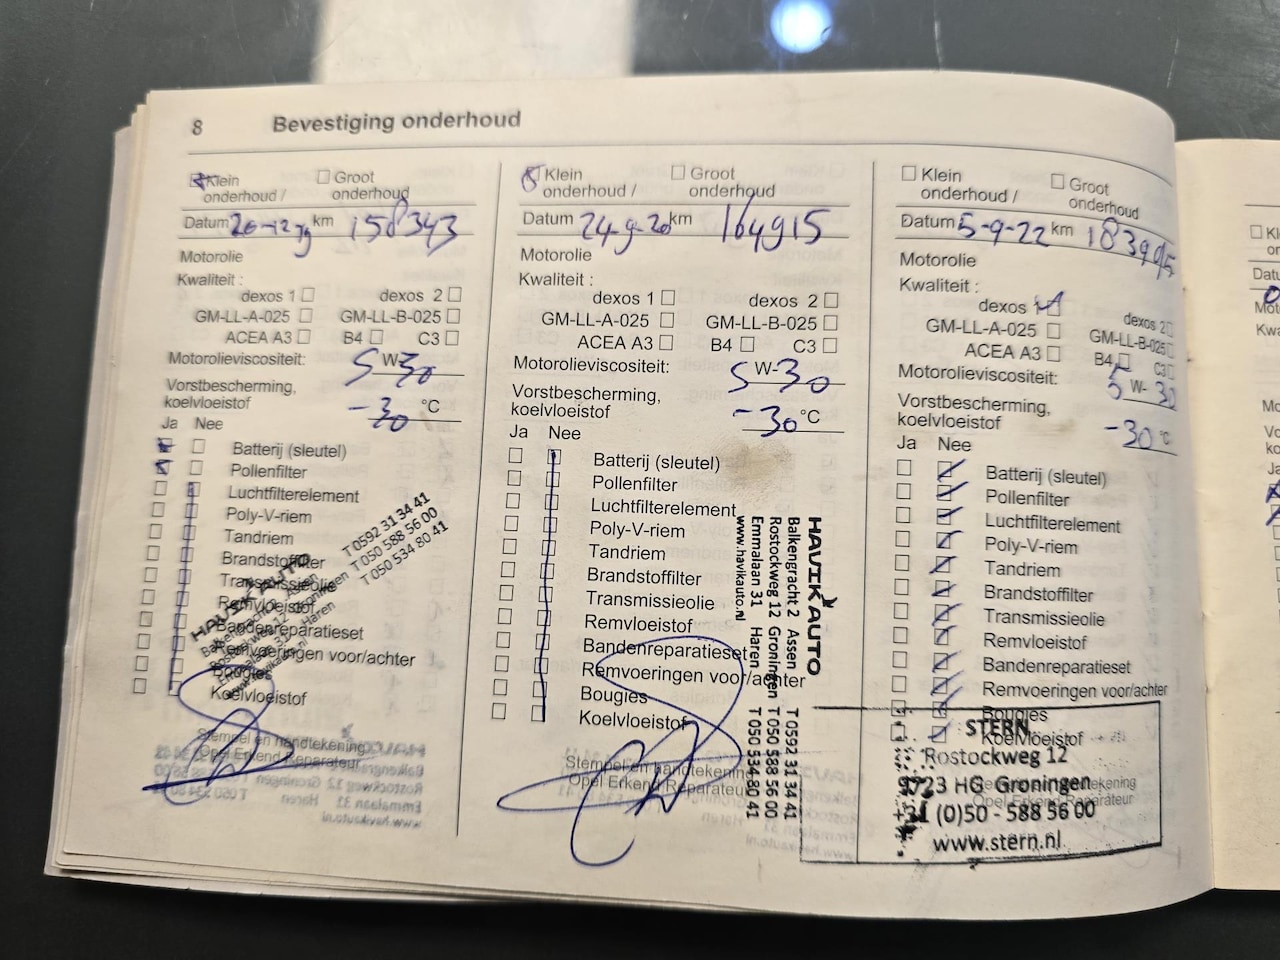 8 Bevestiging onderhoud
Klein onderhoud / Groot onderhoud
Datum 20-12-19 km 158343
Motorolie
Kwaliteit :
dexos 1 dexos 2
GM-LL-A-025 GM-LL-B-025
ACEA A3 B4 C3
Motorolieviscositeit: 5 W-30
Vorstbescherming,
koelvloeistof -30 °C
Ja Nee
Batterij (sleutel)
Pollenfilter
Luchtfilterelement
Poly-V-riem
Tandriem
Brandstoffilter
Transmissieolie
Remvloeistof
Bandenreparatieset
Remvoeringen voor/achter
Bougies
Koelvloeistof
Stempel en handtekening
Opel Erkend Reparateur
HAVIK AUTO
Balkengracht 2 Assen T 0592 31 34 41
Rostockweg 12 Groningen T 050 588 56 00
Emmalaan 31 Haren T 050 534 80 41
www.havikauto.nl
Klein onderhoud / Groot onderhoud
Datum 24-9-20 km 164915
Motorolie
Kwaliteit :
dexos 1 dexos 2
GM-LL-A-025 GM-LL-B-025
ACEA A3 B4 C3
Motorolieviscositeit: 5 W-30
Vorstbescherming,
koelvloeistof -30 °C
Ja Nee
Batterij (sleutel)
Pollenfilter
Luchtfilterelement
Poly-V-riem
Tandriem
Brandstoffilter
Transmissieolie
Remvloeistof
Bandenreparatieset
Remvoeringen voor/achter
Bougies
Koelvloeistof
Stempel en handtekening
Opel Erkend Reparateur
HAVIK AUTO
Balkengracht 2 Assen T 0592 31 34 41
Rostockweg 12 Groningen T 050 588 56 00
Emmalaan 31 Haren T 050 534 80 41
www.havikauto.nl
Klein onderhoud / Groot onderhoud
Datum 5-9-22 km
Motorolie
Kwaliteit :
dexos 1 dexos 2
GM-LL-A-025 GM-LL-B-025
ACEA A3 B4 C3
Motorolieviscositeit: 5 W-30
Vorstbescherming,
koelvloeistof -30 °C
Ja Nee
Batterij (sleutel)
Pollenfilter
Luchtfilterelement
Poly-V-riem
Tandriem
Brandstoffilter
Transmissieolie
Remvloeistof
Bandenreparatieset
Remvoeringen voor/achter
Bougies
Koelvloeistof
Stempel en handtekening
Opel Erkend Reparateur
STERN
Rostockweg 12
9723 HG Groningen
+31 (0)50 - 588 56 00
www.stern.nl